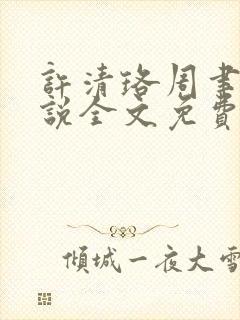 許清珞周聿
說全文免費
傾城一夜大雪